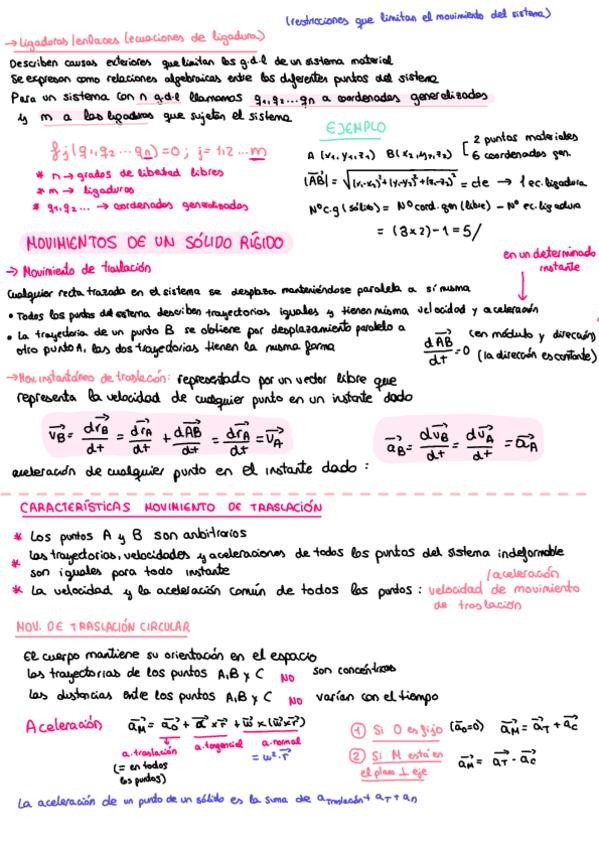 (restricciones que limitan el movimiento del sistema)
→ Ligaduras/enlaces (ecuaciones de ligadura)
Describen causas exteriores que limitan los g.d.l de un sistema material
Se expresan como relaciones algebraicas entre los diferentes puntos del sistema
Para un sistema con n g.d.l llamamos q₁,q₂...qn a coordenadas generalizadas
y m a las ligaduras que sujetan el sistema
EJEMPLO
fj(q₁,q₂...qn)=0; j=1,2...m
* n → grados de libertad libres
* m → ligaduras
* q₁,q₂... → coordenadas generalizadas
A (x₁,y₁,z₁) B(x₂,y₂,z₂) [ 2 puntos materiales
6 coordenadas gen.
|AB| = √(x₁-x₂)²+(y₁-y₂)²+(z₁-z₂)² = cte → 1 ec. ligadura
Nºc.g (sólido) = Nºcord. gen (libre) - Nº ec. ligadura
= (3x2)-1=5/
MOVIMIENTOS DE UN SÓLIDO RÍGIDO
→ Movimiento de traslación
en un determinado
instante
Cualquier recta trazada en el sistema se desplaza manteniéndose paralela a sí misma
• Todos los puntos del sistema describen trayectorias iguales y tienen misma velocidad y aceleración
• La trayectoria de un punto B se obtiene por desplazamiento paralelo a
otro punto A, las dos trayectorias tienen la misma forma
dAB/dt = 0 (en módulo y dirección)
(la dirección es constante)
→ Mov. instantáneo de traslación: representado por un vector libre que
representa la velocidad de cualquier punto en un instante dado
v⃗B = dr⃗B/dt = dr⃗A/dt + dAB/dt = dr⃗A/dt = v⃗A
a⃗B = dv⃗B/dt = dv⃗A/dt = a⃗A
aceleración de cualquier punto en el instante dado :
CARACTERÍSTICAS MOVIMIENTO DE TRASLACIÓN
* Los puntos A y B son arbitrarios
* Las trayectorias, velocidades y aceleraciones de todos los puntos del sistema indeformable
son iguales para todo instante
* La velocidad y la aceleración común de todos los puntos : velocidad/aceleración de movimiento
de traslación
MOV. DE TRASLACIÓN CIRCULAR
El cuerpo mantiene su orientación en el espacio
Las trayectorias de los puntos A,B y C NO son concéntricas
Las distancias entre los puntos A,B y C NO varían con el tiempo
Aceleración a⃗M = a⃗0 + α⃗ x r⃗ + w⃗ x (w⃗ x r⃗)
a. traslación
(= en todos
los puntos)
a. tangencial
a. normal
= w². r⃗
① Si O es fijo (a⃗0=0) a⃗M = a⃗T + a⃗C
② Si M está en
el plano ⊥ eje
a⃗M = a⃗T - a⃗C
La aceleración de un punto de un sólido es la suma de aTraslación + aT + an